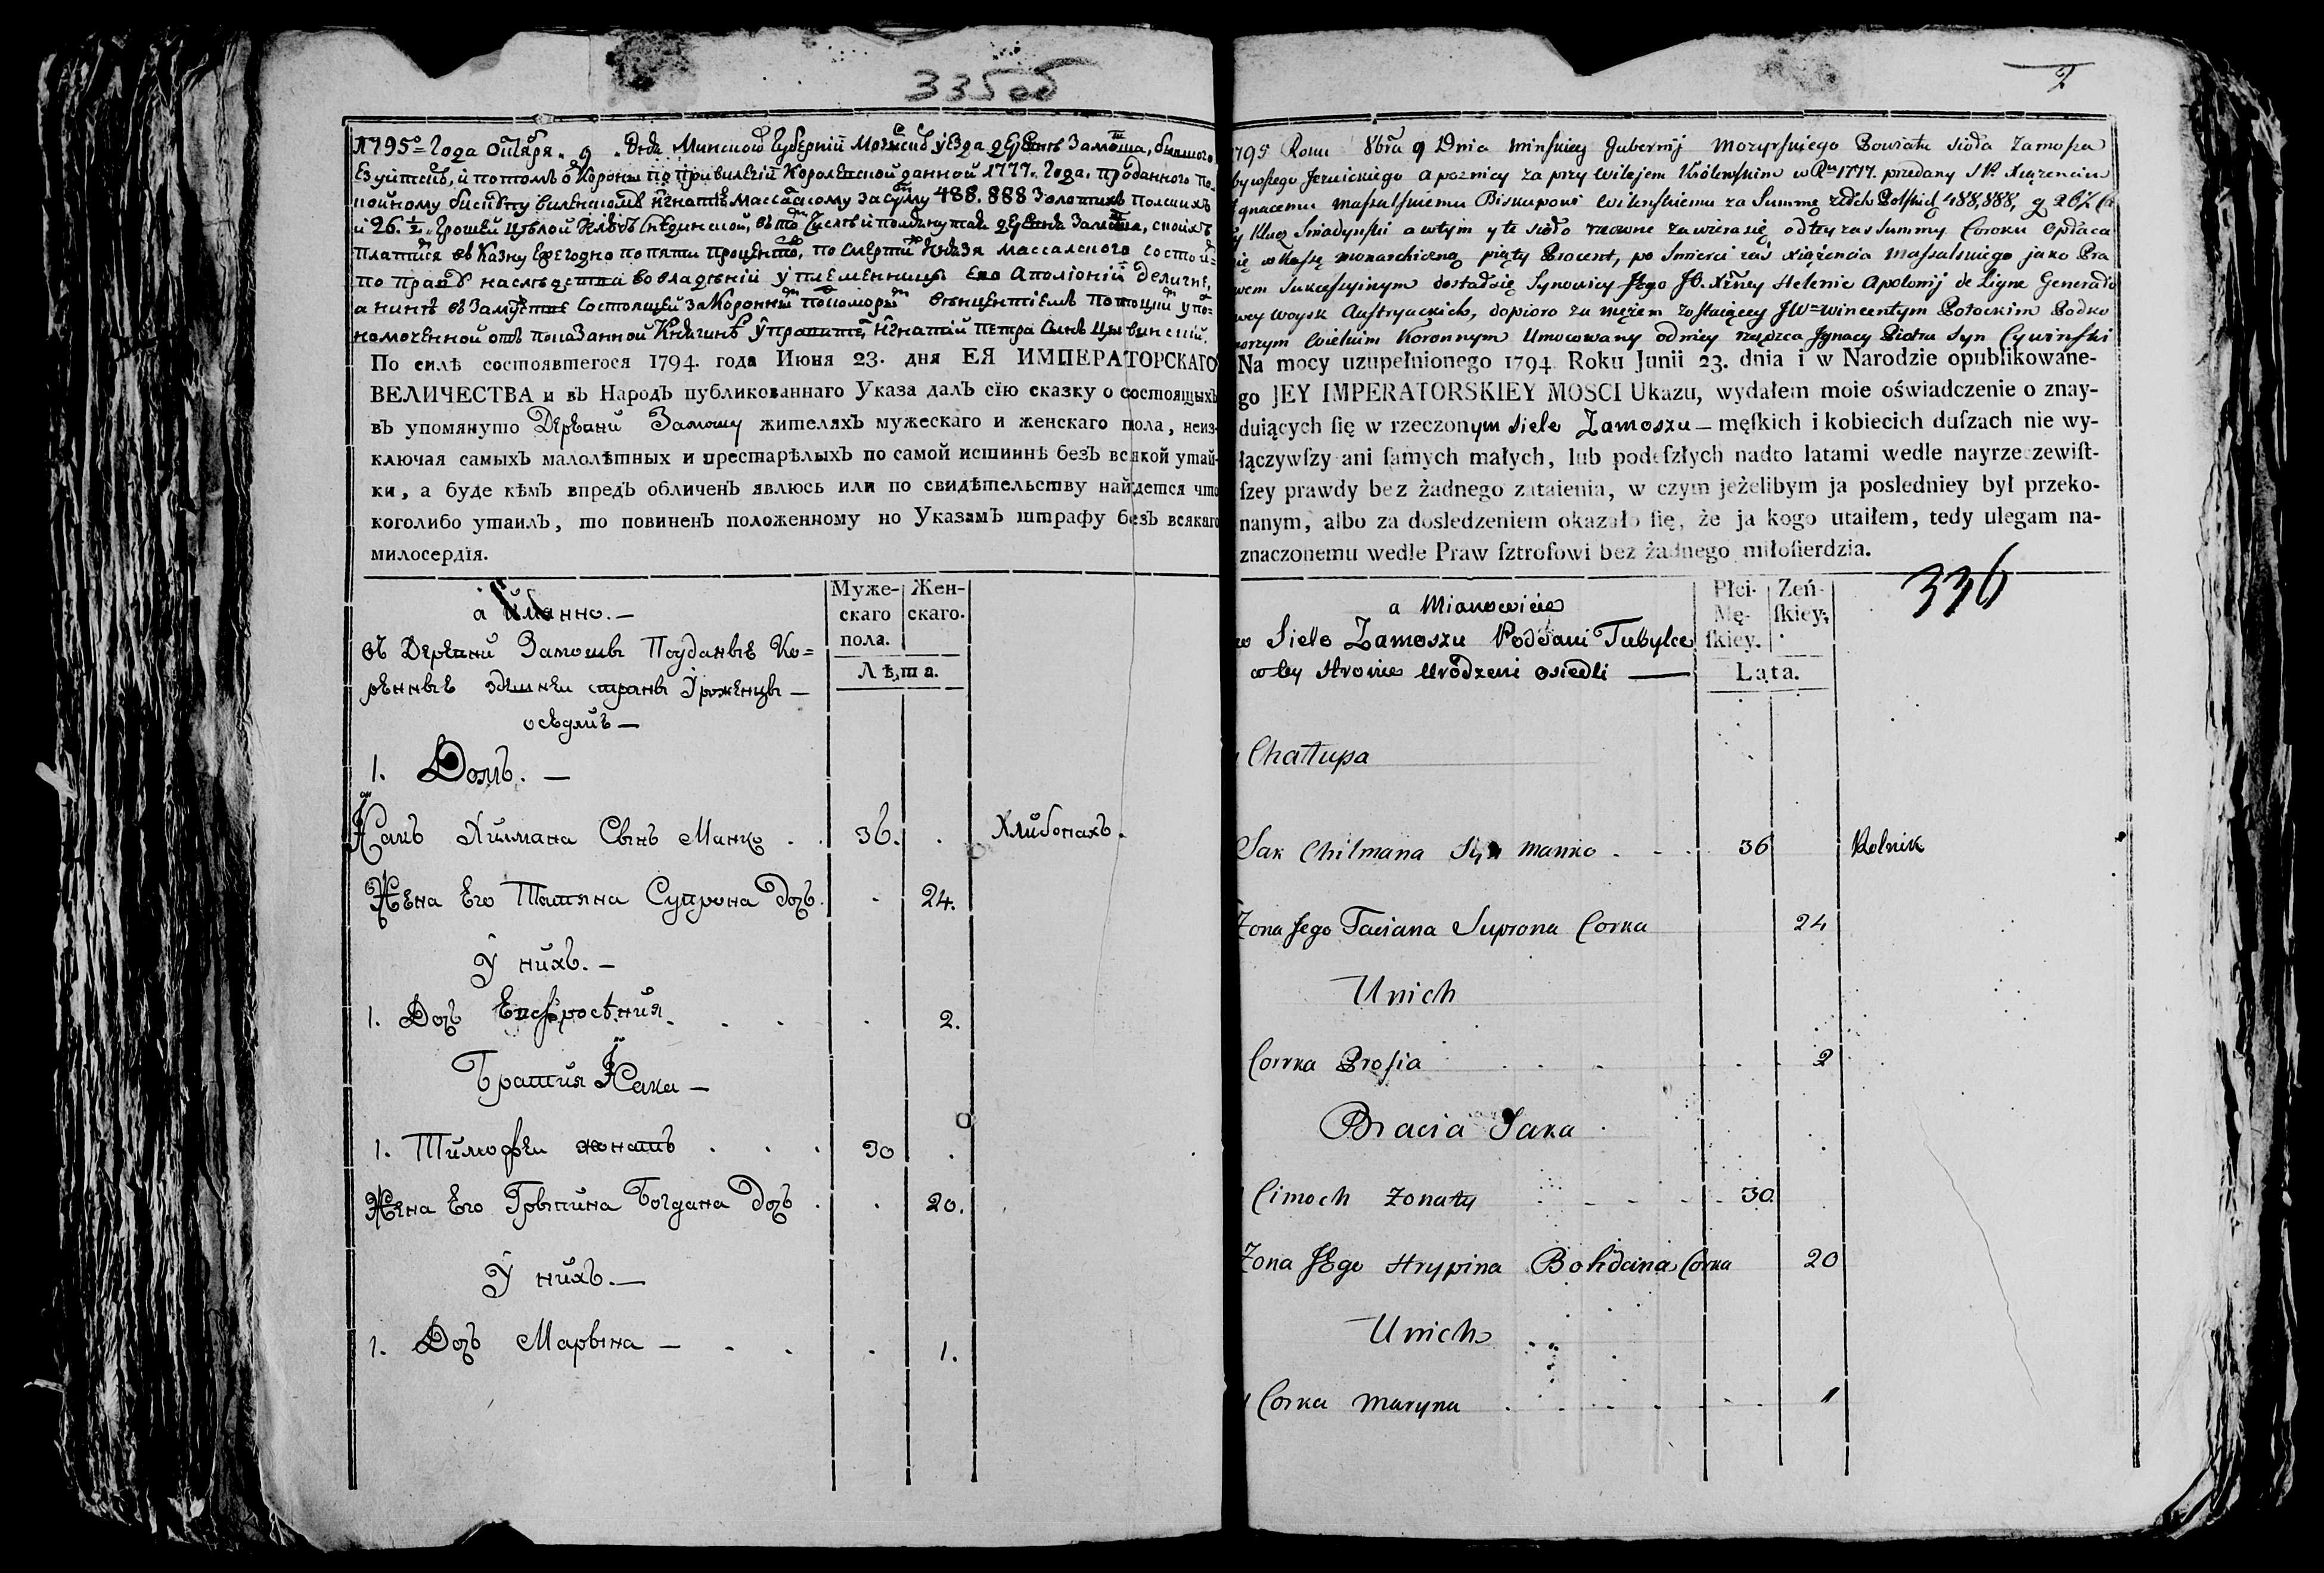 33500
1795го Года Октября 9 Дня Минской Губерний Мозырскаго уезда деревне Замоша, бывшого
Езуитскъ, и потомъ о Короны по привилегий Королевской данной 1777. Года. проданного по-
койному бискупу виленскому Игнатию Массалскому за суму 488.888 Золотихъ Полскихъ
и 26. 1/2 Грошей целой Ключъ Снединской, въ то числе и помянутая деревня Замоша, споихъ
платится въ Казну Ежегодно по пяти проценто, по смерти Князя Массалского состой-
по праву наследства во владений у племенницы Его Аполионий Делигне,
а нине въ Замустве Состоящей за Коронны поконоры винцентиемъ Потоцки упо-
номоченной отъ показанной Княгинѣ Управител Игнатий Петра Сынъ Цывинский.
По силѣ состоявшегося 1794. года Июня 23. дня ЕЯ ИМПЕРАТОРСКАГО
ВЕЛИЧЕСТВА и въ Народъ публикованнаго Указа далъ сїю сказку о состоящыхъ
въ упомянуто Деревни Замошу жителяхъ мужескаго и женскаго пола, неиз-
ключая самыхъ малолѣтныхъ и престарѣлыхъ по самой истиннѣ безъ всякой утай-
ки, а буде кѣмъ впредъ обличенъ явлюсь или по свидѣтельству найдется что
коголибо утаилъ, то повиненъ положенному по Указамъ штрафу безъ всякаго
милосердїя.
а Имянно. —
Муже-скаго пола.
Жен-скаго.
Лѣта.
въ Деревни Замошы Подданые Ко=
ренные здешнеи страны Уроженцы —
осѣдлиѣ —
1. Домъ. —
Исакъ Хилмана Сынъ Манко . . 36. . Хлибопахъ.
Жена Его Татяна Супрона Дочь . . 24.
У нихъ. —
1. Дочь Евфросѣния . . . . 2.
Братия Исака —
1. Тимофеи жонатъ . . . 30 .
Жена Его Грыпина Богдана Дочь . . 20.
У нихъ. —
1. Дочь Марына — . . . 1.
2
1795 Roku 8bra 9 Dnia Minskiey Gubernij Mozyrskiego Powiatu sioła Zamosza
bywszego Jezuickiego a pozniey za przywilejem Królewskim w Ru 1777. przedany SP. Xiążenciu
Ignacemu Massalskiemu Biskupowi Wilenskiemu za Summę złotch Polskich 488,888, g 26½ Ca
ły Klucz Sniadyński a wtym y te sioło rzowne zawiera się, odtey zas Summy Coroku Opłaca
się w Kassę Monarchiczną piąty Procent, po Smierci zaś Xiążencia Massalskiego jako Pra
wem Sukcessyinym dostało się Synowicy Jego JO. Xżney Helenie Apolonij de Ligne Generało
wey Woysk Austryackich, dopioro za mężem Zostaiącey JW= Wincentym Potockim Podko
morzym Wielkim Koronnym Umocowany od niey rządzca Jgnacy Piotra Syn Cywinski
Na mocy uzupełnionego 1794 Roku Junii 23. dnia i w Narodzie opublikowane-
go JEY IMPERATORSKIEY MOSCI Ukazu, wydałem moie oświadczenie o znay-
duiących się w rzeczonym siele Zamoszu — męskich i kobiecich duszach nie wy-
łączywszy ani samych małych, lub podeszłych nadto latami wedle nayrzeczewist-
szey prawdy bez żadnego zataienia, w czym jeżelibym ja posledniey był przeko-
nanym, albo za dosledzeniem okazało się, że ja kogo utaiłem, tedy ulegam na-
znaczonemu wedle Praw sztrofowi bez żadnego miłosierdzia.
336
a Mianowicie
Płci-Mę-skiey.
Zeń-skiey.
Lata.
w Siele Zamoszu Poddani Tubylce
w tey Stronie Urodzeni osiedli —
Chałupa
Sak Chilmana Syn Manko . - . 36 Rolnik
Zona Jego Taciana Suprona Corka 24
Unich
Corka Prosia . . - . . 2
Bracia Saka
Cimoch Zonaty . - - - 30.
Zona Jego Hrypina Bohdana Corka 20
Unich
1 Corka Maryna . . . . . . 1